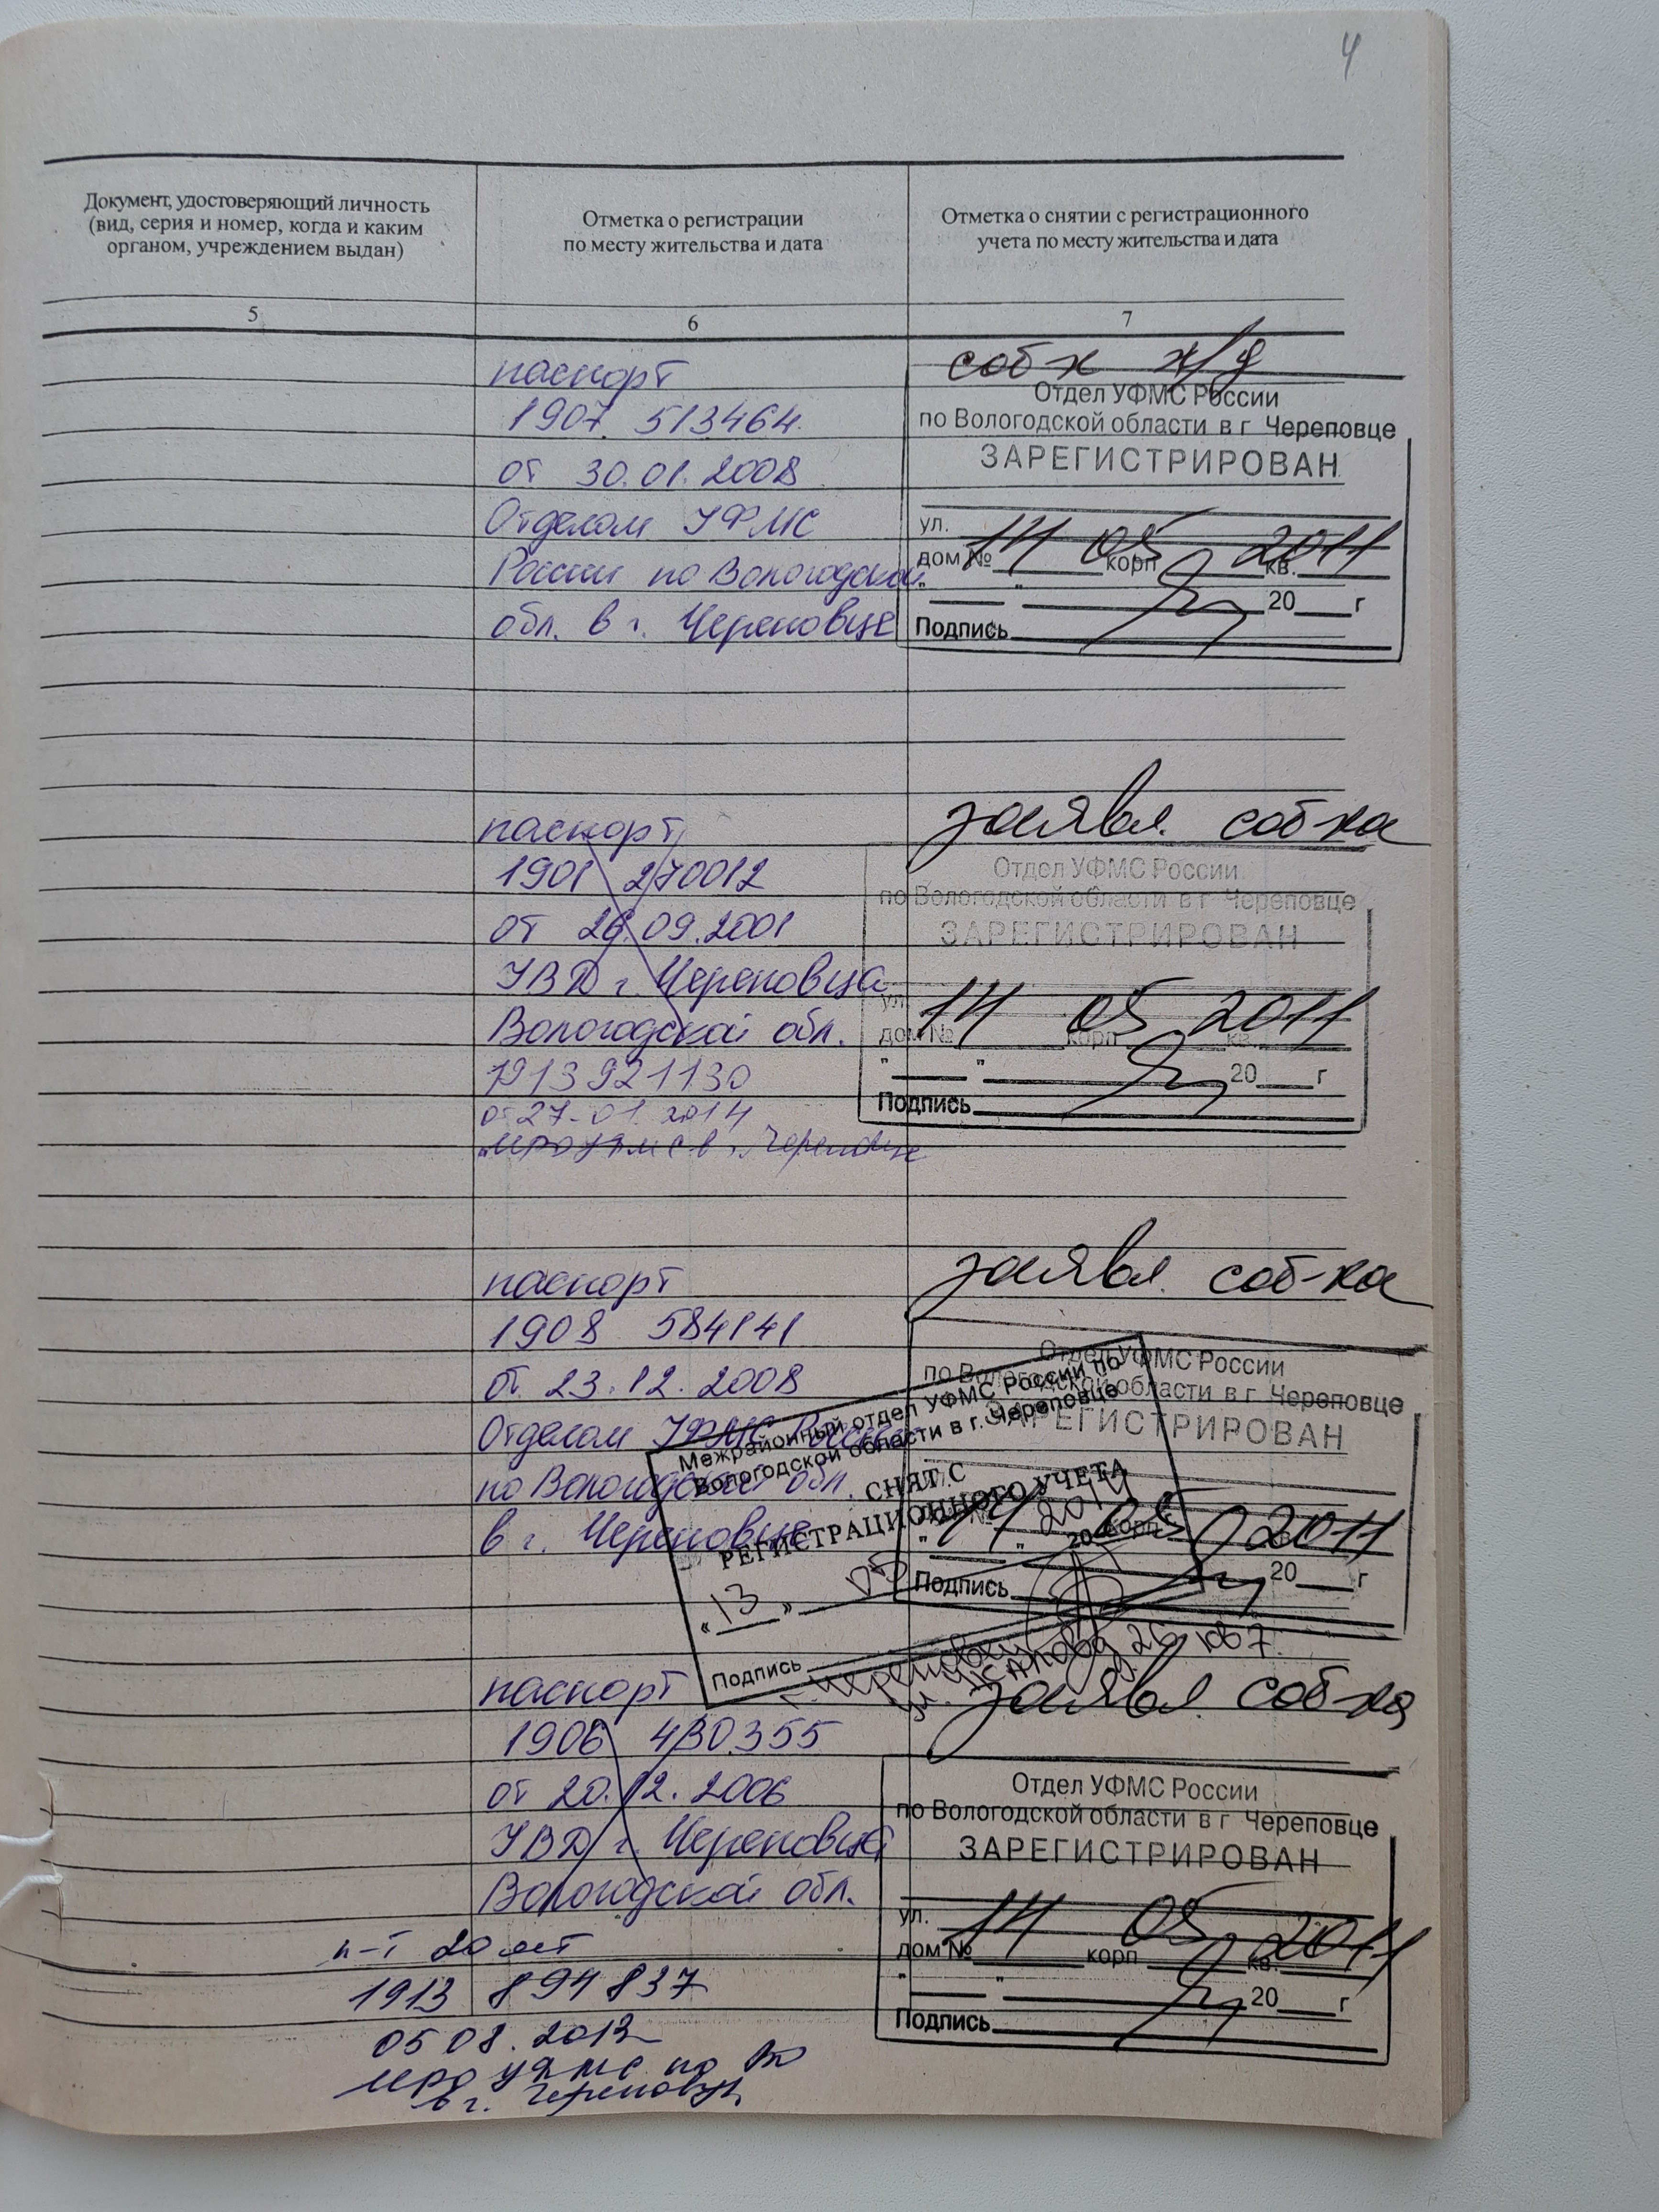 4
Документ, удостоверяющий личность
(вид, серия и номер, когда и каким
органом, учреждением выдан)
Отметка о регистрации
по месту жительства и дата
Отметка о снятии с регистрационного
учета по месту жительства и дата
5
6
7
паспорт
1907 513464
от 30.01.2008
Отделом УФМС
России по Вологодской
обл. в г. Череповце
соб-к ж/д
Отдел УФМС России
по Вологодской области в г Череповце
ЗАРЕГИСТРИРОВАН
ул.
14 05 2011
дом № корп кв.
" " 20 г
Подпись
паспорт
1901 270012
от 26.09.2001
УВД г. Череповца
Вологодской обл.
1913 921130
от 27.01.2014
МРО УФМС в г. Череповце
заявл. соб-ка
Отдел УФМС России
по Вологодской области в г Череповце
ЗАРЕГИСТРИРОВАН
ул.
14 05 2011
дом № корп кв.
" " 20 г
Подпись
паспорт
1908 584141
от 23.12.2008
Отделом УФМС России
по Вологодской обл.
в г. Череповце
заявл. соб-ка
Отдел УФМС России
по Вологодской области в г Череповце
ЗАРЕГИСТРИРОВАН
14 05 2011
корп
" " 20 г
Подпись
Межрайонный отдел УФМС России по
Вологодской области в г. Череповце
СНЯТ С
РЕГИСТРАЦИОННОГО УЧЕТА
«13» 05 2014
20 г.
Подпись
г. Череповец
ул. 26 кв 7
паспорт
1906 430355
от 20.12.2006
УВД г. Череповца
Вологодской обл.
заявл. соб-ка
Отдел УФМС России
по Вологодской области в г Череповце
ЗАРЕГИСТРИРОВАН
ул.
14 05 2011
дом № корп кв.
" " 20 г
Подпись
п-т 20 лет
1913 894837
05 08. 2013
МРО УФМС по ВО
в г. Череповце